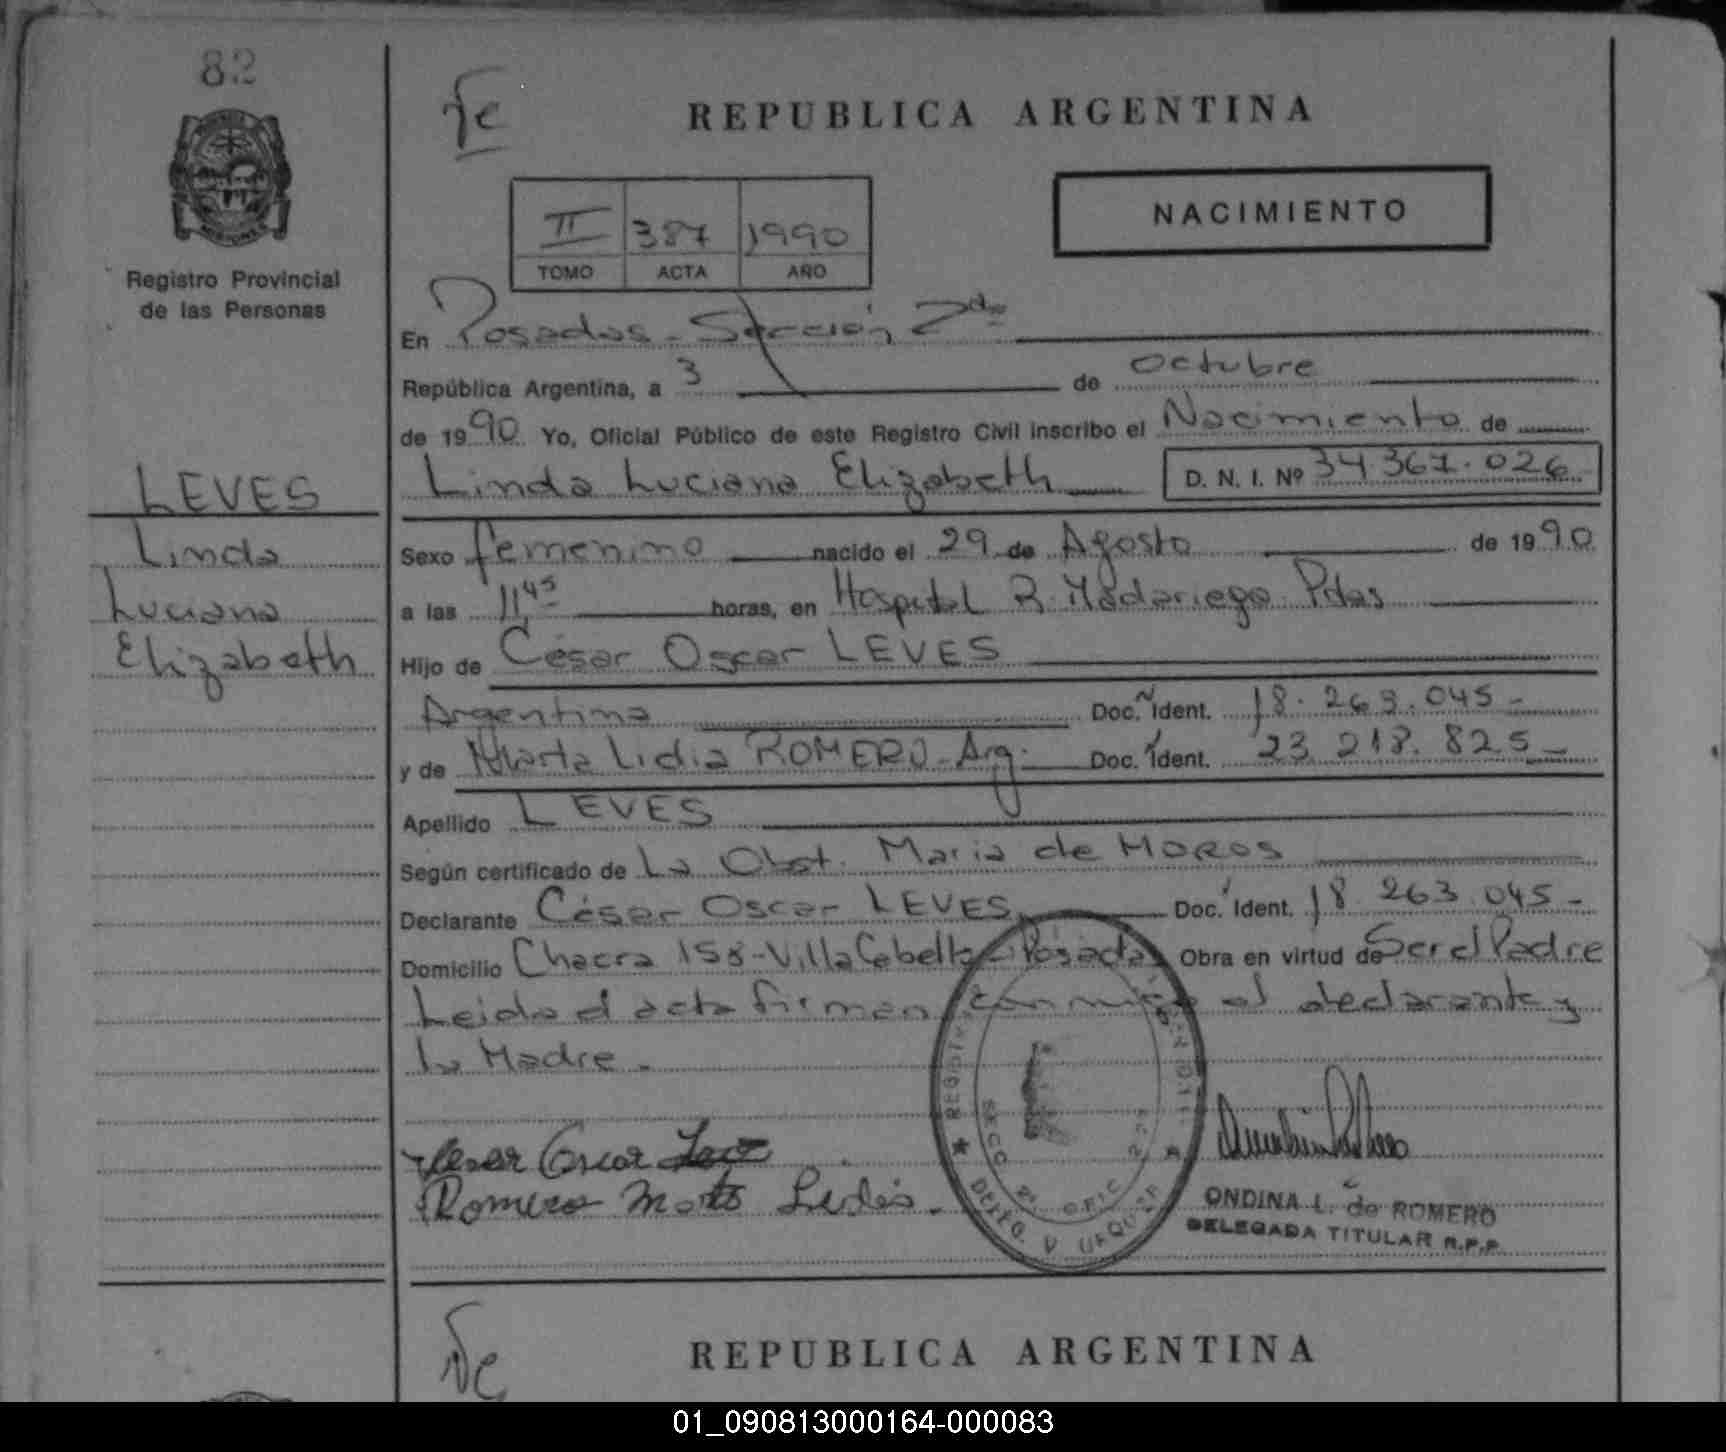 82
REPUBLICA ARGENTINA
NACIMIENTO
II 387 1990
TOMO ACTA AÑO
Registro Provincial
de las Personas
En Posadas - Sección 2da
República Argentina, a 3 de octubre
de 1990. Yo, Oficial Público de este Registro Civil inscribo el Nacimiento de
Linda Luciana Elizabeth D. N. I. Nº 34.367.026
LEVES
Linda
Luciana
Elizabeth
Sexo femenino nacido el 29 de Agosto de 1990
a las 11,45 horas, en Hospital R. Madariaga Pdas
Hijo de César Oscar LEVES
Argentina Doc. Ident. 18.263.045-
y de Marta Lidia ROMERO - Arg. Doc. Ident. 23.218.825-
Apellido LEVES
Según certificado de La Obst. Maria de MOROS
Declarante César Oscar LEVES Doc. Ident. 18.263.045-
Domicilio Chacra 158 - Villa Cabello - Posadas Obra en virtud de Ser el Padre
Leida el acta firman conmigo el declarante y
la Madre.
Cesar Oscar
Romero Marta Lidia.
REGISTRO
SECC 2ª OFIC
DEPTO. V URQUIZA
ONDINA L. de ROMERO
DELEGADA TITULAR R.P.P.
REPUBLICA ARGENTINA
01_090813000164-000083